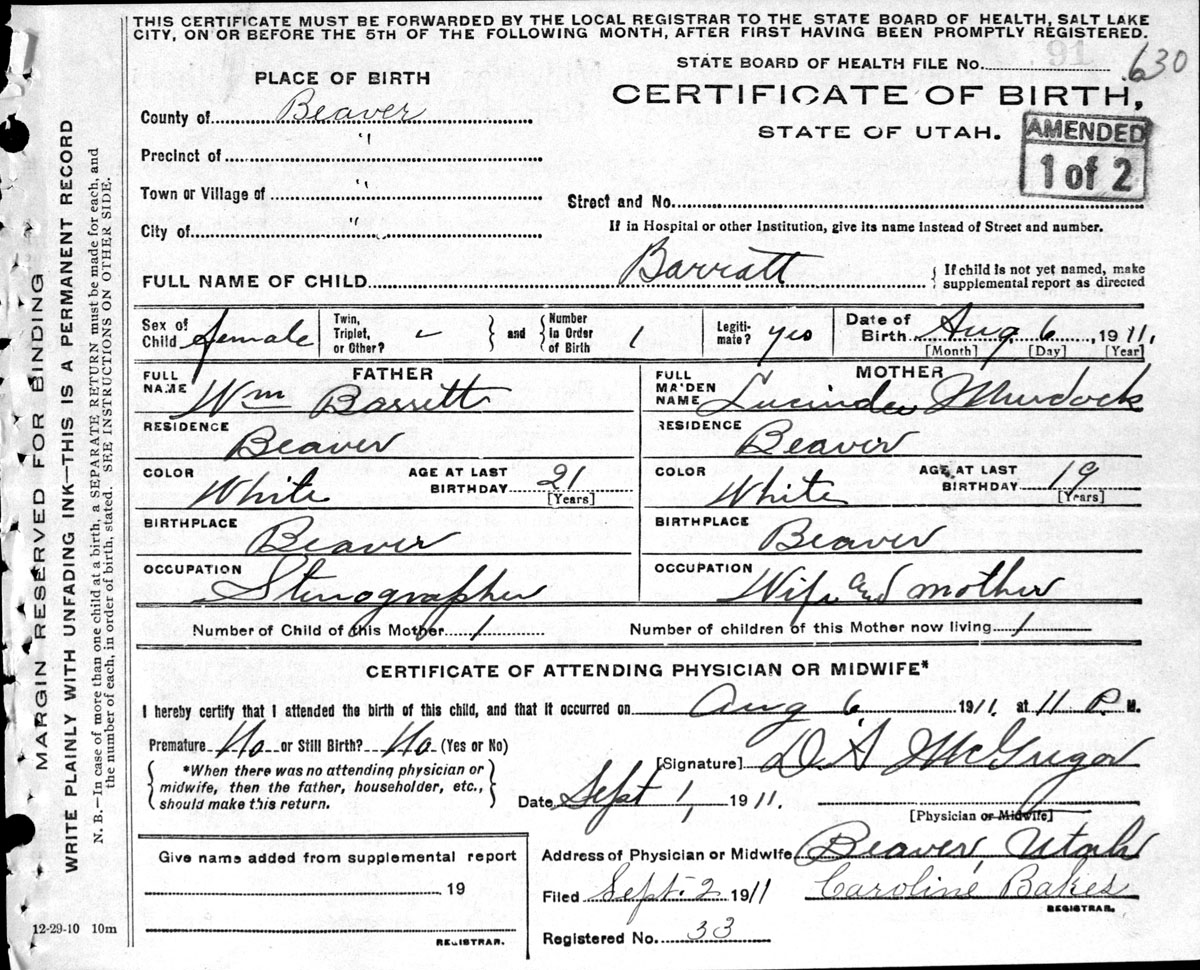 THIS CERTIFICATE MUST BE FORWARDED BY THE LOCAL REGISTRAR TO THE STATE BOARD OF HEALTH, SALT LAKE
CITY, ON OR BEFORE THE 5TH OF THE FOLLOWING MONTH, AFTER FIRST HAVING BEEN PROMPTLY REGISTERED.
STATE BOARD OF HEALTH FILE No. 630
PLACE OF BIRTH
CERTIFICATE OF BIRTH,
STATE OF UTAH.
AMENDED
1 of 2
County of Beaver
Precinct of "
Town or Village of "
City of "
Street and No.
If in Hospital or other Institution, give its name instead of Street and number.
FULL NAME OF CHILD Barratt
{ If child is not yet named, make
supplemental report as directed
Sex of Child female
Twin, Triplet, or Other? - } and { Number in Order of Birth 1
Legiti- mate? yes
Date of Birth Aug 6, 1911,
[Month] [Day] [Year]
FATHER
FULL NAME Wm Barrett
RESIDENCE Beaver
COLOR White AGE AT LAST BIRTHDAY 21 [Years]
BIRTHPLACE Beaver
OCCUPATION Stenographer
MOTHER
FULL MAIDEN NAME Lucinda Murdock
RESIDENCE Beaver
COLOR White AGE AT LAST BIRTHDAY 19 [Years]
BIRTHPLACE Beaver
OCCUPATION Wife and mother
Number of Child of this Mother 1 Number of children of this Mother now living 1
CERTIFICATE OF ATTENDING PHYSICIAN OR MIDWIFE*
I hereby certify that I attended the birth of this child, and that it occurred on Aug 6 1911. at 11 P M.
Premature No or Still Birth? No (Yes or No)
{ *When there was no attending physician or
midwife, then the father, householder, etc.,
should make this return. }
[Signature] D. A McGregor
Date Sept 1, 1911.
[Physician or Midwife]
Address of Physician or Midwife Beaver, Utah
Filed Sept. 2 1911 Caroline Bakes
REGISTRAR.
Registered No. 33
Give name added from supplemental report
19
REGISTRAR.
12-29-10 10m
MARGIN RESERVED FOR BINDING
WRITE PLAINLY WITH UNFADING INK—THIS IS A PERMANENT RECORD
N. B.—In case of more than one child at a birth, a SEPARATE RETURN must be made for each, and
the number of each, in order of birth, stated. SEE INSTRUCTIONS ON OTHER SIDE.